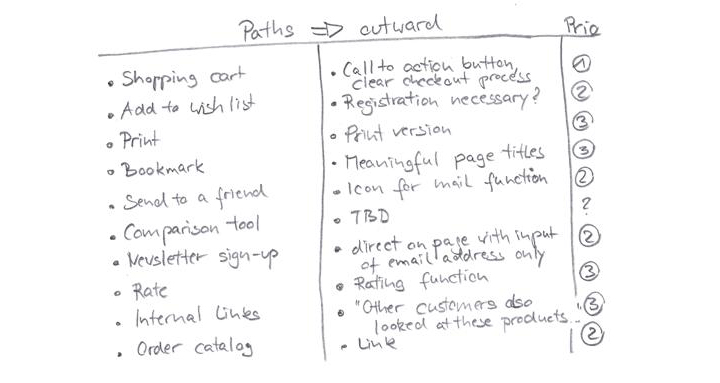 Paths ⇒ outward Prio
• Shopping cart • Call to action button, ①
clear checkout process
• Add to wish list • Registration necessary? ②
• Print • Print version ③
• Bookmark • Meaningful page titles ③
• Send to a friend • Icon for mail function ②
• Comparison tool • TBD ?
• Newsletter sign-up • direct on page with input ②
of email address only
• Rate • Rating function ③
• Internal Links • "Other customers also ③
looked at these products..."
• Order catalog • Link ②